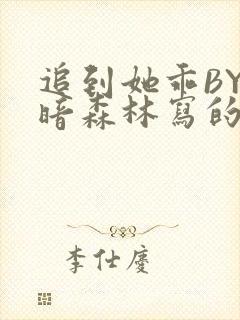 追到她乖BY
暗森林寫的
李仕慶